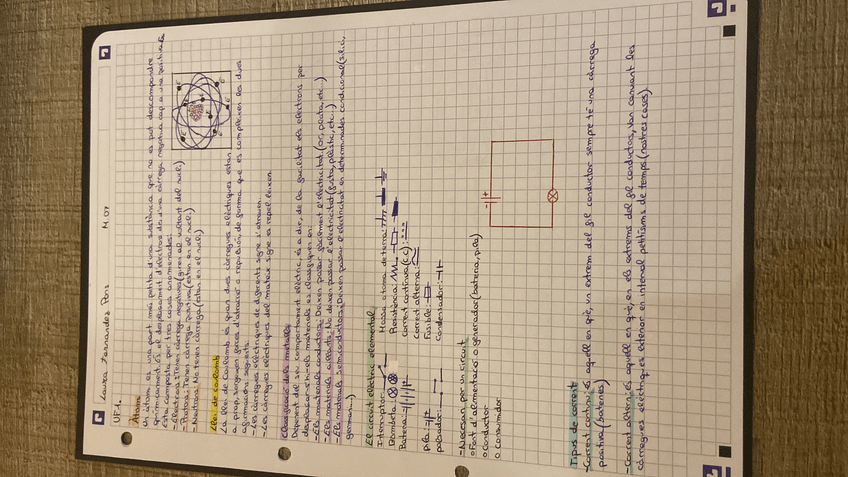 Laura Fernandez Pons M 07
UF1.
Àtom
Un àtom és una part més petita d'una substància que no es pot descompondre
químicament és el desplaçament d'electros de d'una càrrega negativa cap a una positiva.
Esta composta per tres coses anomenades:
- Electrons: Tenen càrrega negativa (giren al voltant del nucli)
- Protons: Tenen càrrega positiva (estan en el nucli)
- Neutrons: No tenen càrrega (estan en el nucli)
Llei de coulomb
La llei de Coulomb és quan dues càrregues elèctriques estan
a prop, sorgeixen forces d'atracció o repulsió, de forma que es compleixen les dues
afirmacions següents:
- Les càrregues elèctriques de diferents signe s'atrauen.
- Les càrregues elèctriques del mateix signe es repel·leixen.
Classificació dels metalls
Depenent del seu comportament elèctric, és a dir, de la facilitat els electrons per
desplaçar-s'hi els materials es classifiquen en:
- Els materials conductors: Deixen passar fàcilment l'electricitat (or, plata, etc.)
- Els materials aïllants: No deixen passar l'electricitat (fusta, plàstic, etc.)
- Els materials semiconductors: Deixen passar l'electricitat en determinades condicions (silici,
germani...)
El circuit elèctric elemental
Interruptor:
Bombeta:
Bateria:
pila:
polsador:
Massa o toma de terra:
Resistència:
Corrent continua (c.c):
Corrent alterna:
Fusible:
Condensador:
- Necessari per un circuit
o Font d'alimentació o generador (bateria, pila)
o Conductor
o Consumidor
Tipus de corrent
- Corrent continu: és aquell en què, un extrem del fil conductor sempre té una càrrega
positiva (bateries)
- Corrent altern: és aquell en què, en els extrems del fil conductor, van canviant les
càrregues elèctriques exterior en interval petitíssims de temps (nostres cases).